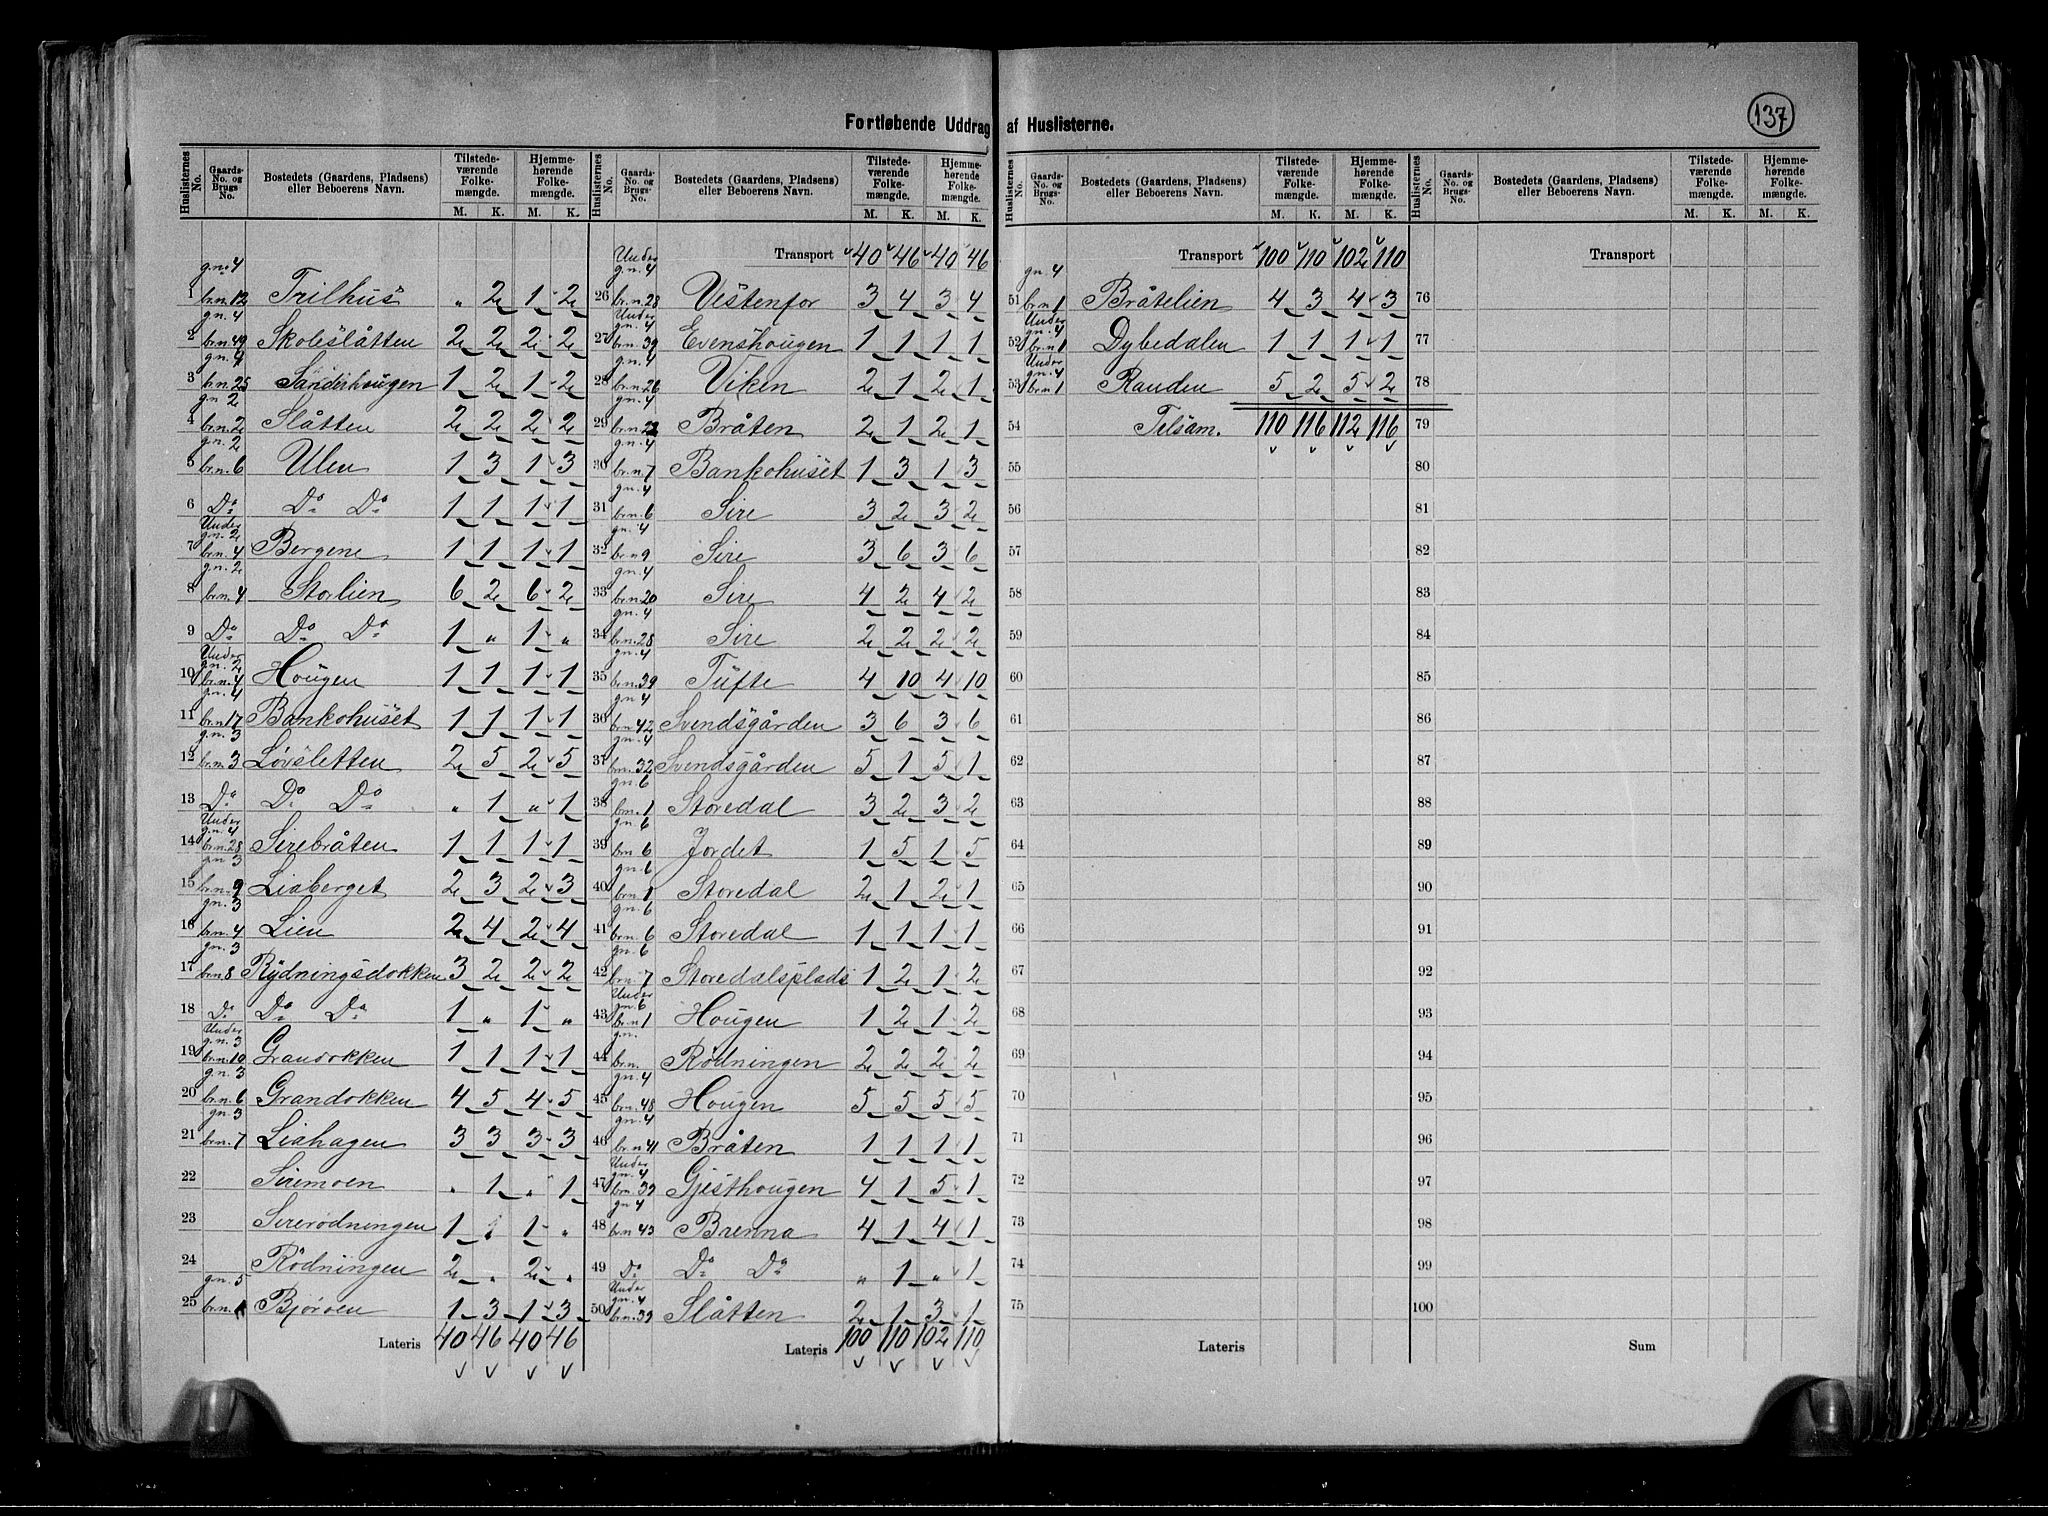 137
Fortløbende Uddrag af Huslisterne.
Huslisternes No. | Gaards-No. og Brugs-No. | Bostedets (Gaardens, Pladsens) eller Beboerens Navn. | Tilstedeværende Folkemængde. M. K. | Hjemmehørende Folkemængde. M. K.
1 gn. 4 br.n. 12 Trilhus " 2 1 2
2 gn. 4 br.n. 49 Skoleslåtten 2 2 2 2
3 gn. 4 br.n. 25 Sanderhougen 1 2 1 2
4 gn. 2 br.n. 2 Slåtten 2 2 2 2
5 gn. 2 br.n. 6 Ulen 1 3 1 3
6 Do Do Do 1 1 1 1
7 Under gn. 2 br.n. 4 Bergene 1 1 1 1
8 gn. 2 br.n. 4 Storlien 6 2 6 2
9 Do Do Do 1 " 1 "
10 Under gn. 2 br.n. 4 Hougen 1 1 1 1
11 gn. 4 br.n. 17 Bankohuset 1 1 1 1
12 gn. 3 br.n. 3 Løvsletten 2 5 2 5
13 Do Do Do " 1 " 1
14 Under gn. 4 br.n. 28 Sirebråten 1 1 1 1
15 gn. 3 br.n. 9 Liaberget 2 3 2 3
16 gn. 3 br.n. 4 Lien 2 4 2 4
17 gn. 3 br.n. 8 Rydningsdokken 3 2 2 2
18 Do Do Do 1 " 1 "
19 Under gn. 3 br.n. 10 Grandokken 1 1 1 1
20 gn. 3 br.n. 6 Grandokken 4 5 4 5
21 gn. 3 br.n. 7 Liahagen 3 3 3 3
22 Siremoen " 1 " 1
23 Sirerödningen 1 " 1 "
24 Rödningen 2 " 2 "
25 gn. 5 br.n. 1 Bjøroen 1 3 1 3
Lateris 40 46 40 46
Huslisternes No. | Gaards-No. og Brugs-No. | Bostedets (Gaardens, Pladsens) eller Beboerens Navn. | Tilstedeværende Folkemængde. M. K. | Hjemmehørende Folkemængde. M. K.
Transport 40 46 40 46
26 Under gn. 4 br.n. 28 Vestenfor 3 4 3 4
27 Under gn. 4 br.n. 39 Evenshougen 1 1 1 1
28 gn. 4 br.n. 26 Viken 2 1 2 1
29 gn. 4 br.n. 22 Bråten 2 1 2 1
30 gn. 4 br.n. 7 Bankohuset 1 3 1 3
31 gn. 4 br.n. 6 Sire 3 2 3 2
32 gn. 4 br.n. 9 Sire 3 6 3 6
33 gn. 4 br.n. 20 Sire 4 2 4 2
34 gn. 4 br.n. 28 Sire 2 2 2 2
35 gn. 4 br.n. 39 Tufte 4 10 4 10
36 gn. 4 br.n. 42 Svendsgården 3 6 3 6
37 gn. 4 br.n. 32 Svendsgården 5 1 5 1
38 gn. 6 br.n. 1 Storedal 3 2 3 2
39 gn. 6 br.n. 6 Jordet 1 5 1 5
40 gn. 6 br.n. 1 Storedal 2 1 2 1
41 gn. 6 br.n. 6 Storedal 1 1 1 1
42 gn. 6 br.n. 7 Storedalsplads 1 2 1 2
43 Under gn. 6 br.n. 1 Hougen 1 2 1 2
44 gn. br.n. Rödningen 2 2 2 2
45 gn. 4 br.n. 48 Hougen 5 5 5 5
46 gn. 4 br.n. 41 Bråten 1 1 1 1
47 Under gn. 4 br.n. 39 Gjesthougen 4 1 5 1
48 gn. 4 br.n. 43 Brenna 4 1 4 1
49 Do Do Do " 1 " 1
50 Under gn. 4 br.n. 39 Slåtten 2 1 3 1
Lateris 100 110 102 110
Huslisternes No. | Gaards-No. og Brugs-No. | Bostedets (Gaardens, Pladsens) eller Beboerens Navn. | Tilstedeværende Folkemængde. M. K. | Hjemmehørende Folkemængde. M. K.
Transport 100 110 102 110
51 gn. 4 br.n. 1 Bråtelien 4 3 4 3
52 Under gn. 4 br.n. 1 Dybedalen 1 1 1 1
53 Under gn. 4 br.n. 1 Randen 5 2 5 2
54 Tilsam. 110 116 112 116
55
56
57
58
59
60
61
62
63
64
65
66
67
68
69
70
71
72
73
74
75
Lateris
Huslisternes No. | Gaards-No. og Brugs-No. | Bostedets (Gaardens, Pladsens) eller Beboerens Navn. | Tilstedeværende Folkemængde. M. K. | Hjemmehørende Folkemængde. M. K.
Transport
76
77
78
79
80
81
82
83
84
85
86
87
88
89
90
91
92
93
94
95
96
97
98
99
100
Sum